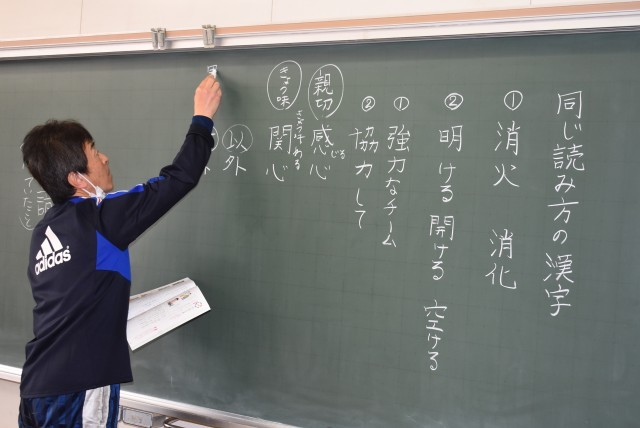 同じ読み方の漢字
① 消火 消化
② 明ける 開ける 空ける
① 強力なチーム
② 協力して
親切 感心
じる
きょう味 関心
以外
adidas